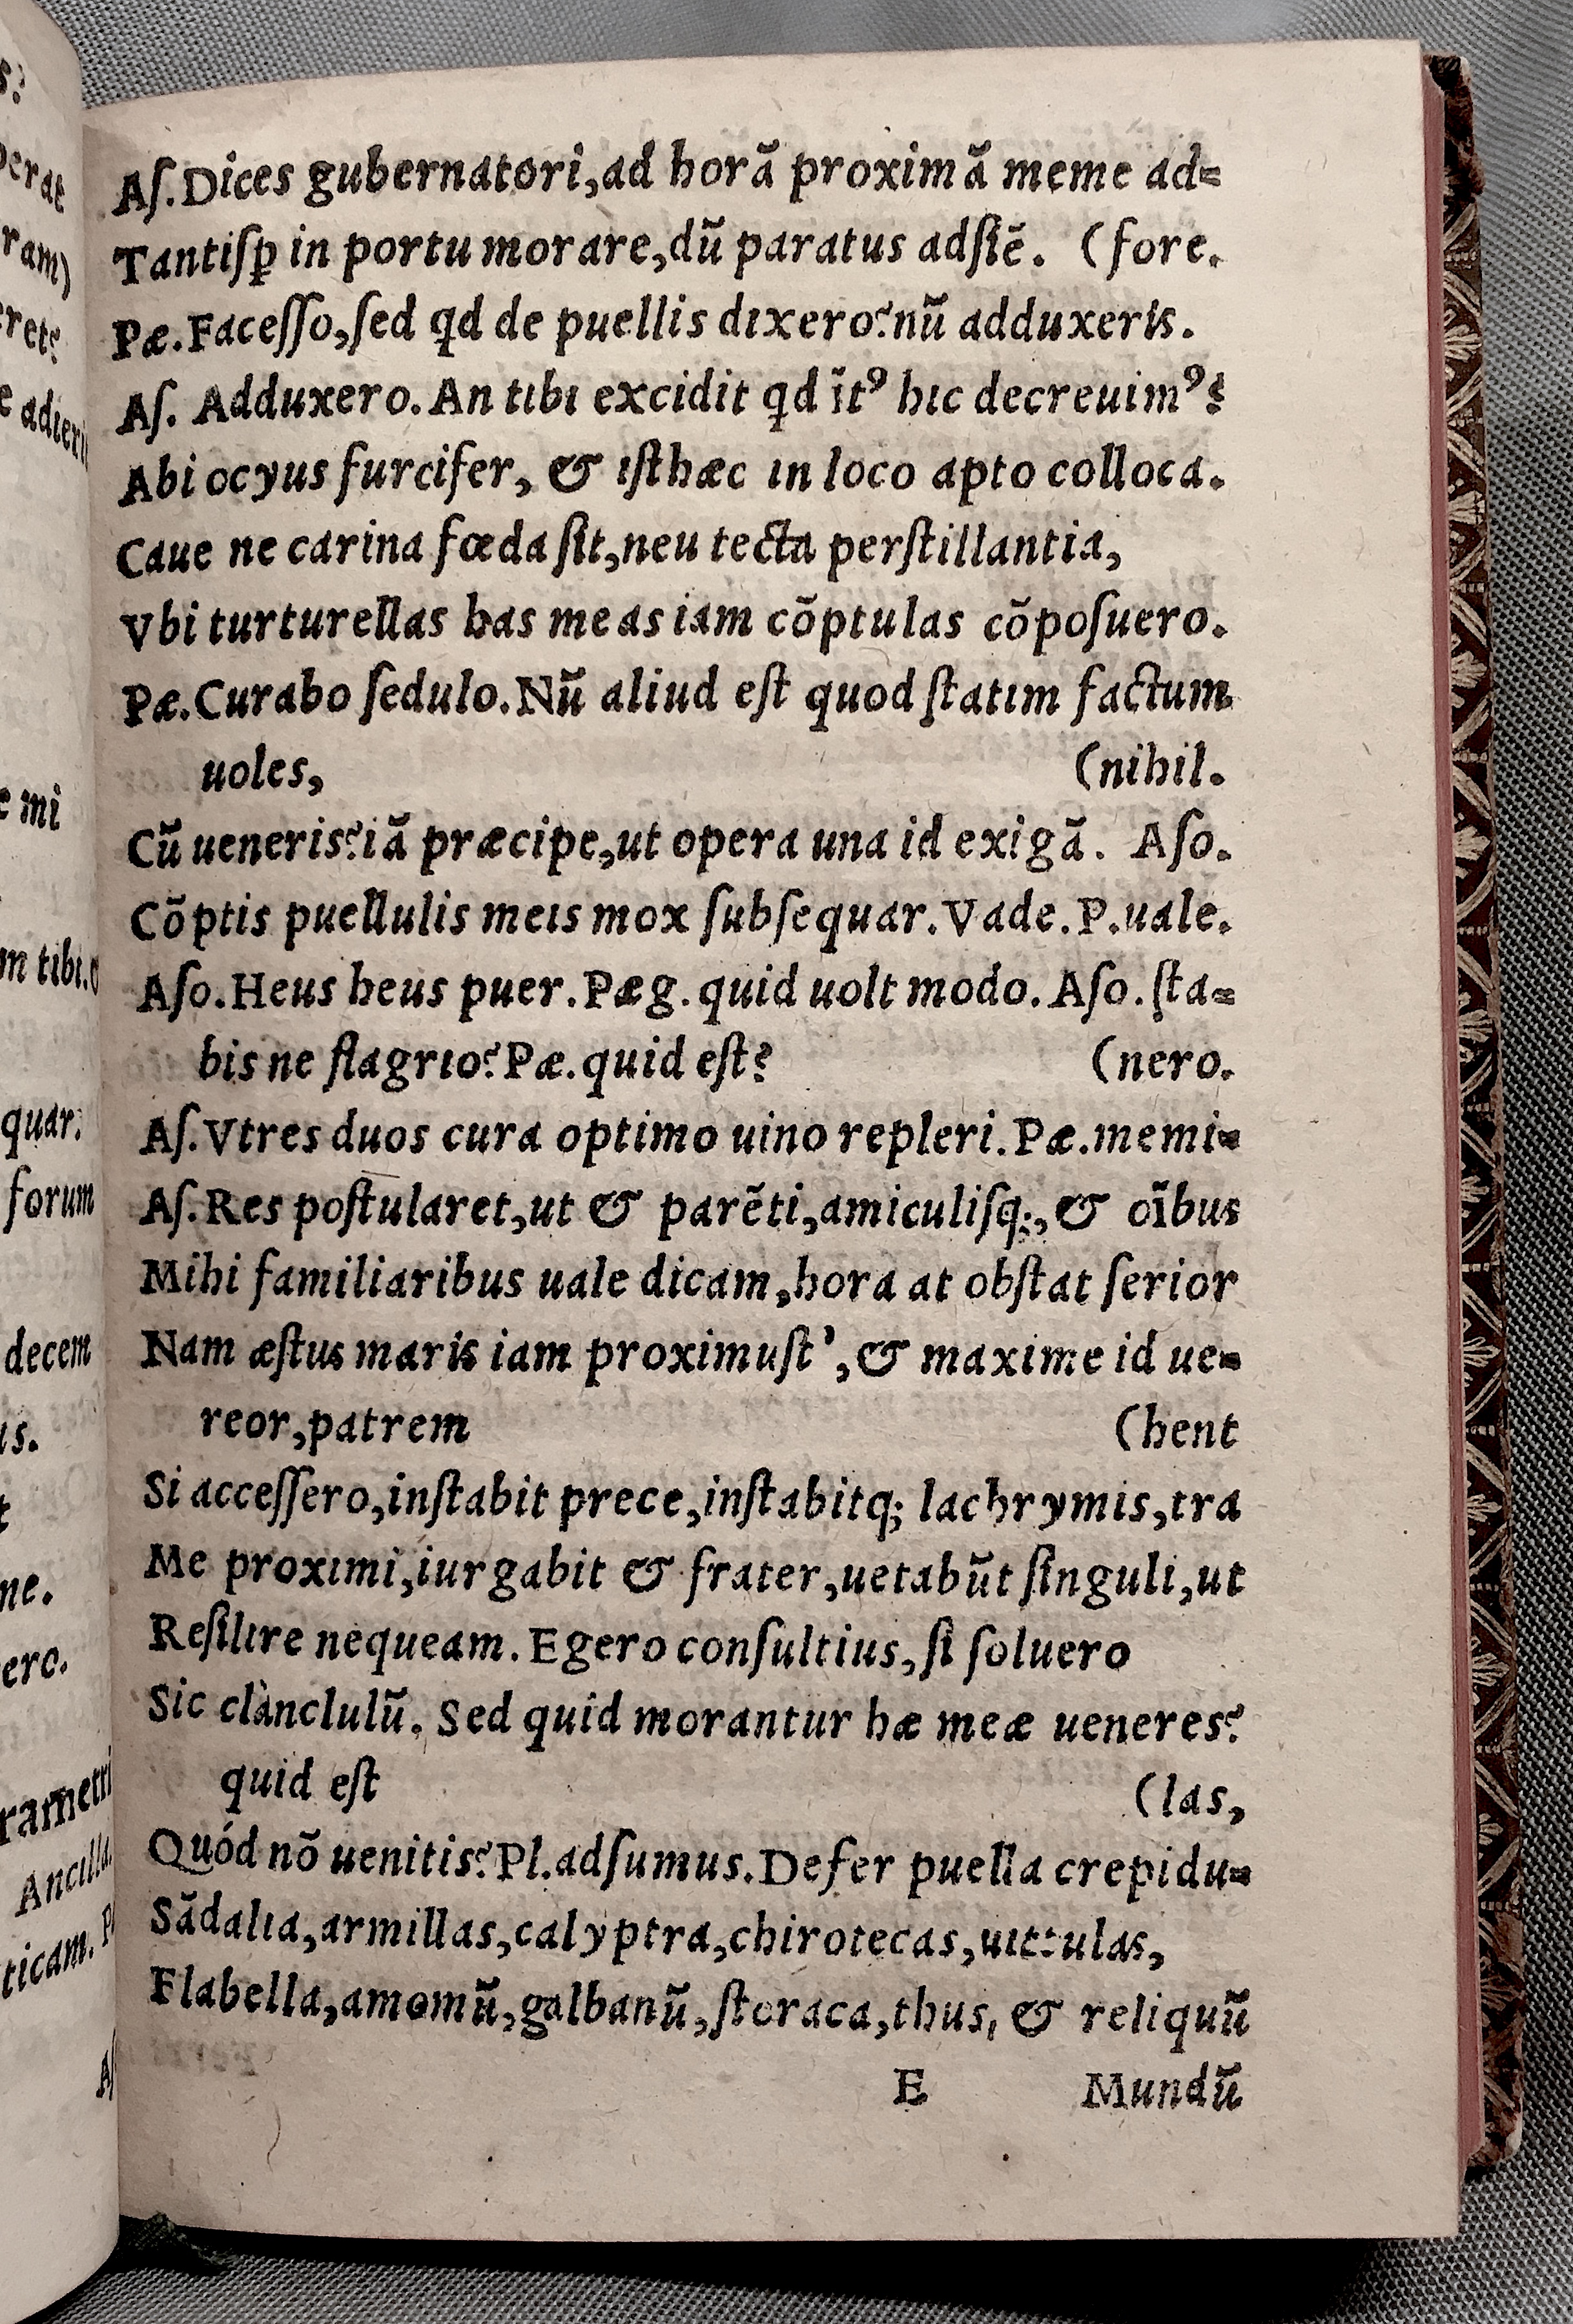 Aſ. Dices gubernatori, ad horã proximã meme ad=
Tantiſꝑ in portu morare, dũ paratus adſiẽ. (fore.
Pæ. Faceſſo, ſed qd de puellis dixero? nũ adduxeris.
Aſ. Adduxero. An tibi excidit qd ĩtꝰ hic decreuimꝰ?
Abi ocyus furcifer, & iſthæc in loco apto colloca.
Caue ne carina fœda ſit, neu tecta perſtillantia,
Vbi turturellas has meas iam cõptulas cõpoſuero.
Pæ. Curabo ſedulo. Nũ aliud eſt quod ſtatim factum
uoles, (nihil.
Cũ ueneris? iã præcipe, ut opera una id exigã. Aſo.
Cõptis puellulis meis mox ſubſequar. Vade. P. uale.
Aſo. Heus heus puer. Pæg. quid uolt modo. Aſo. ſta=
bis ne flagrio? Pæ. quid eſt? (nero.
Aſ. Vtres duos cura optimo uino repleri. Pæ. memi=
Aſ. Res poſtularet, ut & parẽti, amiculiſq;, & oĩbus
Mihi familiaribus uale dicam, hora at obſtat ſerior
Nam æſtus maris iam proximuſt', & maxime id ue=
reor, patrem (hent
Si acceſſero, inſtabit prece, inſtabitq; lachrymis, tra
Me proximi, iurgabit & frater, uetabũt ſinguli, ut
Reſilire nequeam. Egero conſultius, ſi ſoluero
Sic clànclulũ. Sed quid morantur hæ meæ ueneres?
quid eſt (las,
Quód nõ uenitis? Pl. adſumus. Defer puella crepidu=
Sãdalia, armillas, calyptra, chirotecas, uittulas,
Flabella, amomũ, galbanũ, ſtoraca, thus, & reliquũ
E Mundũ